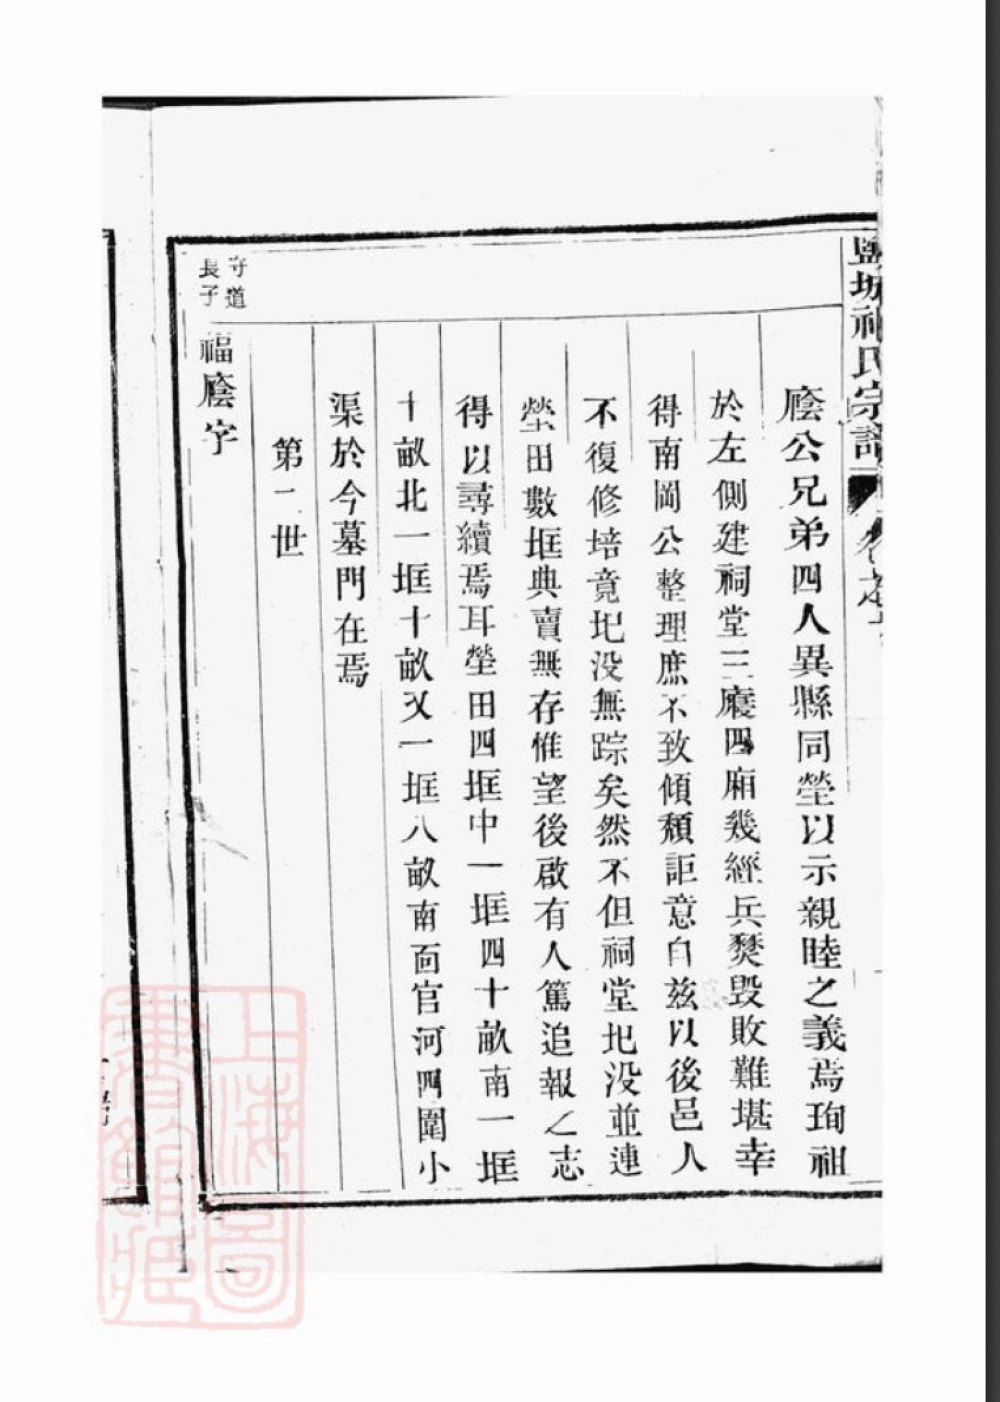 鹽城祁氏宗譜
廕公兄弟四人異縣同塋以示親睦之義焉珣祖
於左側建祠堂三廈四廂幾經兵燹毀敗難堪幸
得南岡公整理庶不致傾頹詎意自茲以後邑人
不復修培竟圮没無踪矣然不但祠堂圮没並連
塋田數坵典賣無存惟望後啟有人篤追報之志
得以尋續焉耳塋田四坵中一坵四十畝南一坵
十畝北一坵十畝又一坵八畝南面官河四圍小
渠於今墓門在焉
第二世
守道
長子
福廕字
上海圖
書館藏